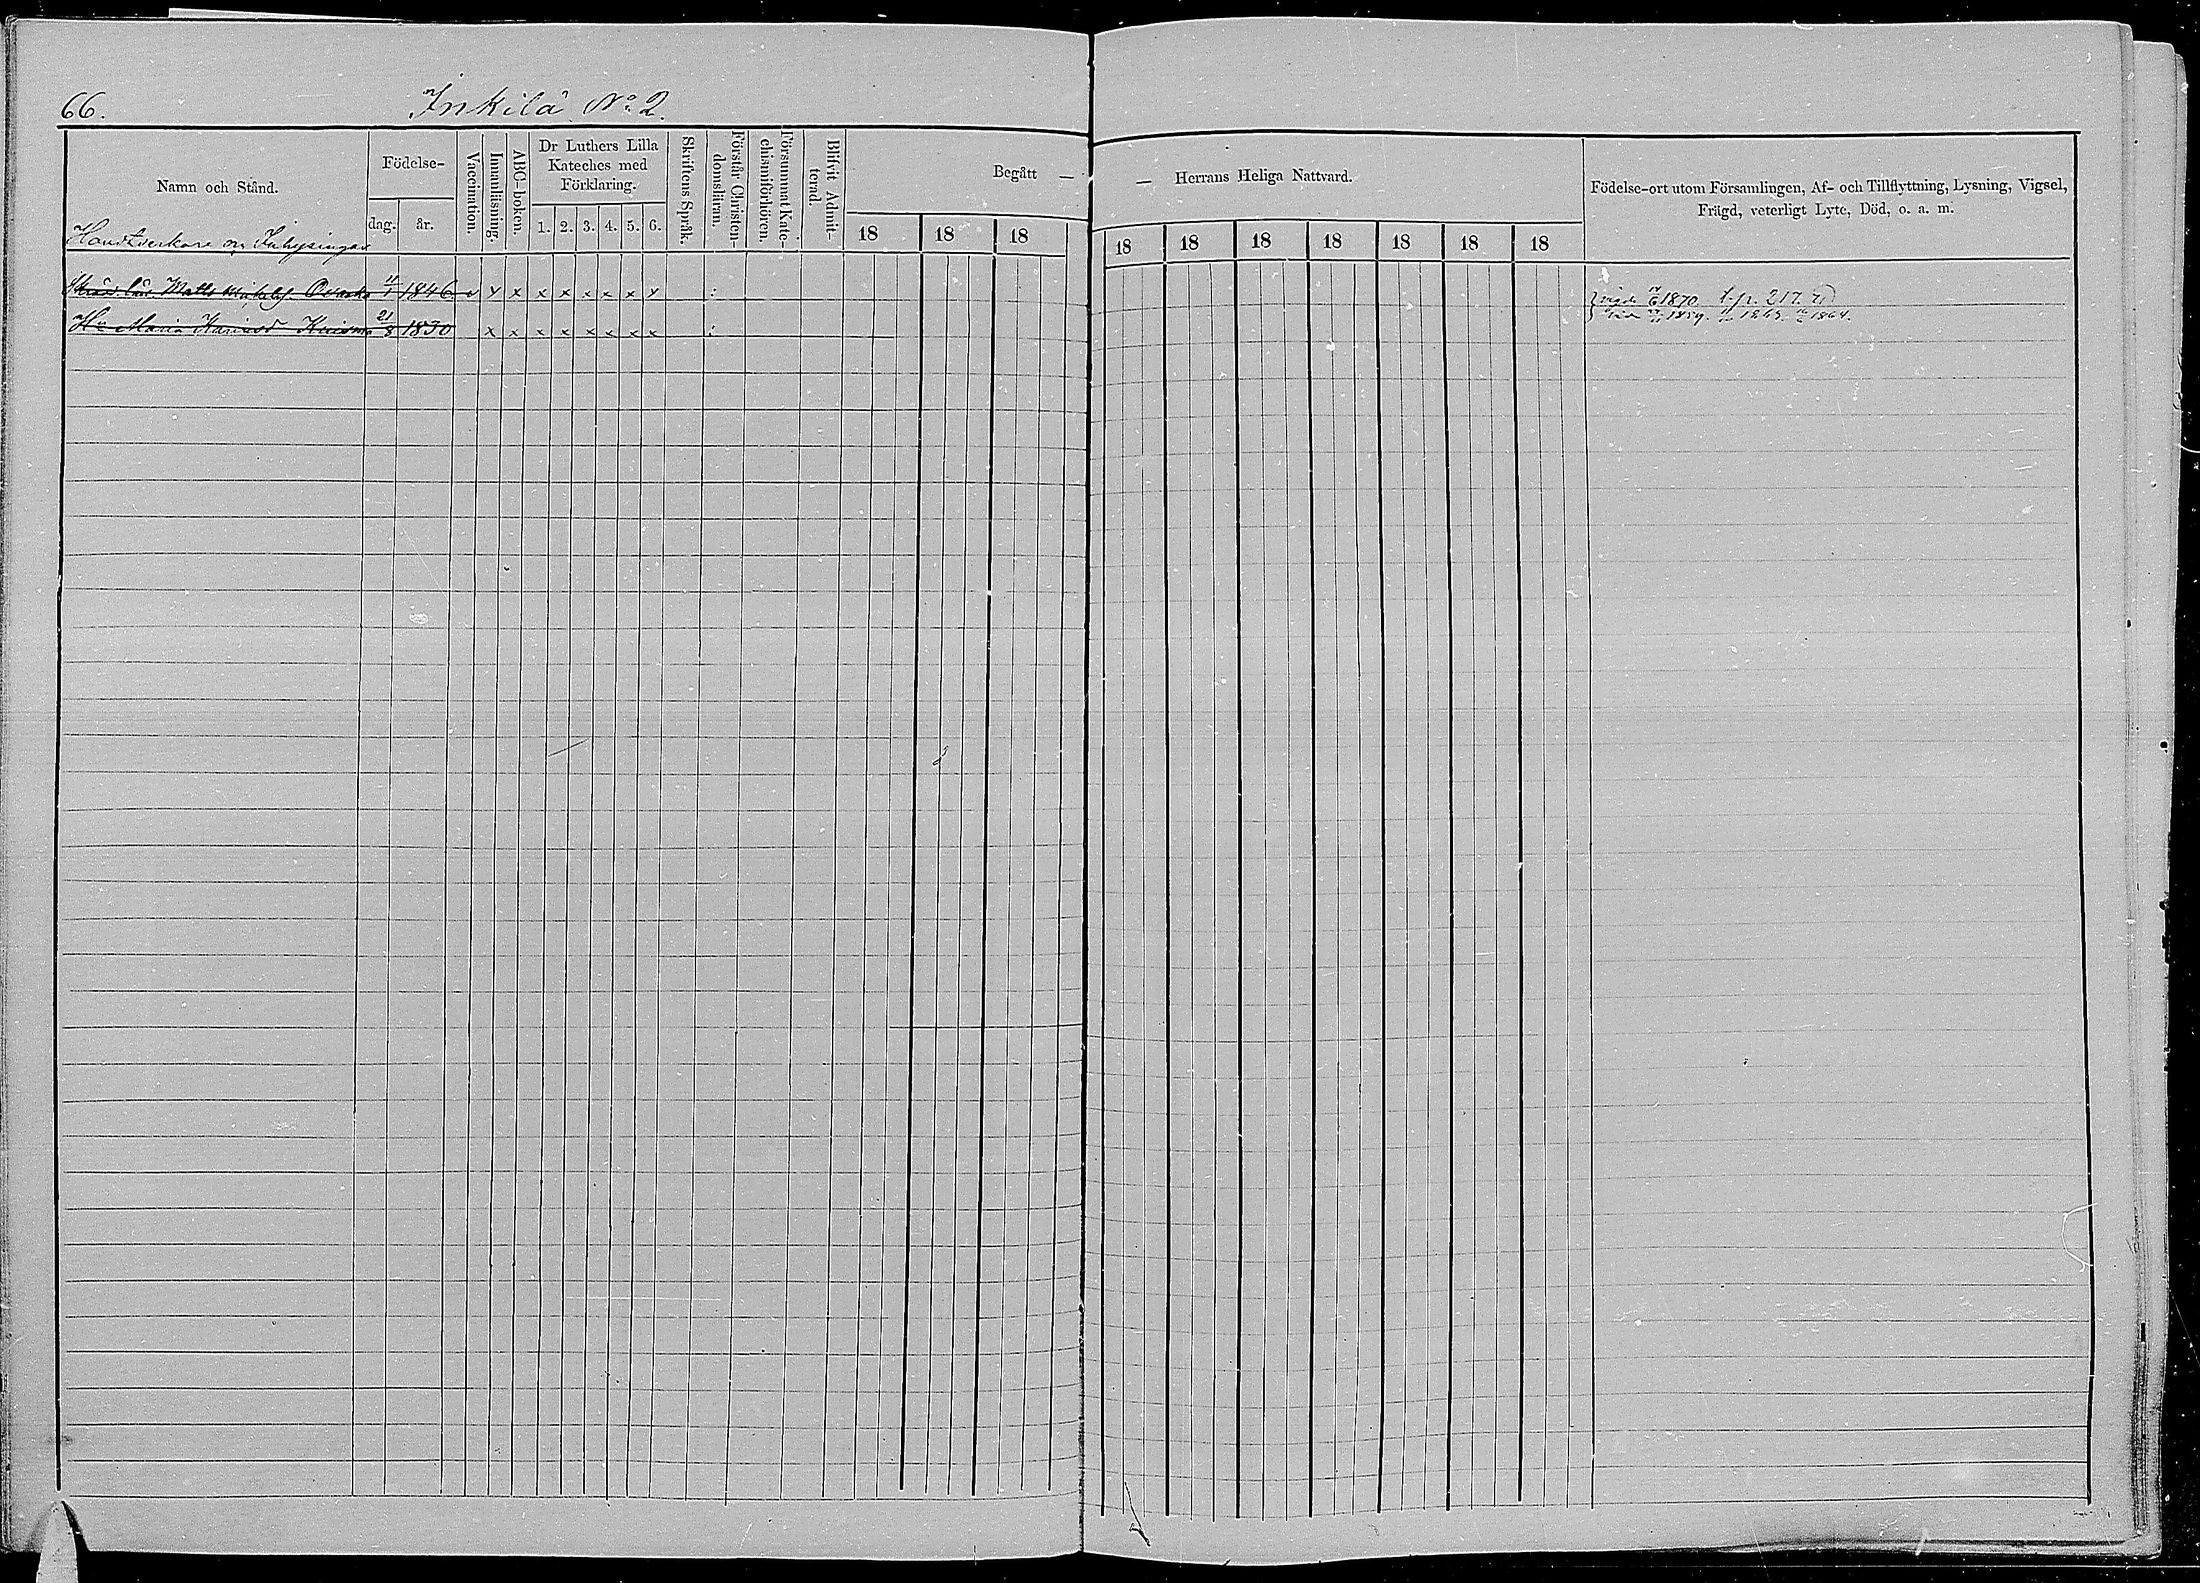 66.
Inkilä No 2.
Namn och Stånd.
Födelse-
dag.
år.
Vaccination.
Innanläsning.
ABC-boken.
Dr Luthers Lilla
Kateches med
Förklaring.
1. 2. 3. 4. 5. 6.
Skriftens Språk.
Förstår Christen-
domsläran.
Försummat Kate-
chismiförhören.
Blifvit Admit-
terad.
Begått —
18 18 18
— Herrans Heliga Nattvard.
18 18 18 18 18 18 18
Födelse-ort utom Församlingen, Af- och Tillflyttning, Lysning, Vigsel,
Frägd, veterligt Lyte, Död, o. a. m.
Handtverkare o, Inhysingar
Matts 1846 v x x x x x x x x :
Hu Maria 21/8 1830 x x x x x x x x :
1870 217.
1859. 1864.